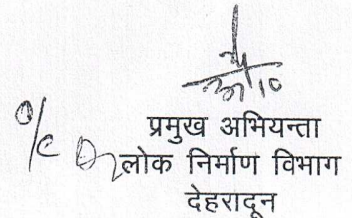 O/C
प्रमुख अभियन्ता
लोक निर्माण विभाग
देहरादून